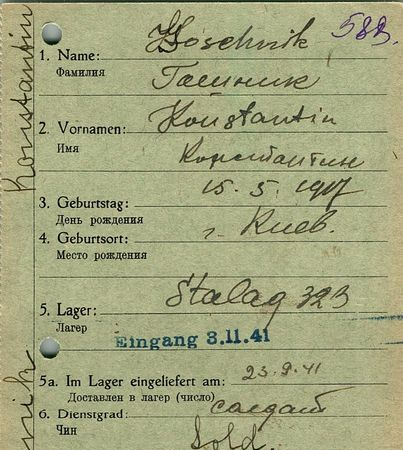 583.
1. Name:
Фамилия
2. Vornamen: Konstantin
Имя
Константин
15. 5. 1917
3. Geburtstag:
День рождения
г. Киев.
4. Geburtsort:
Место рождения
5. Lager: Stalag 323
Лагер
Eingang 3.11.41
5a. Im Lager eingeliefert am: 23.9.41
Доставлен в лагер (число)
6. Dienstgrad: солдат
Чин
Sold.
Konstantin